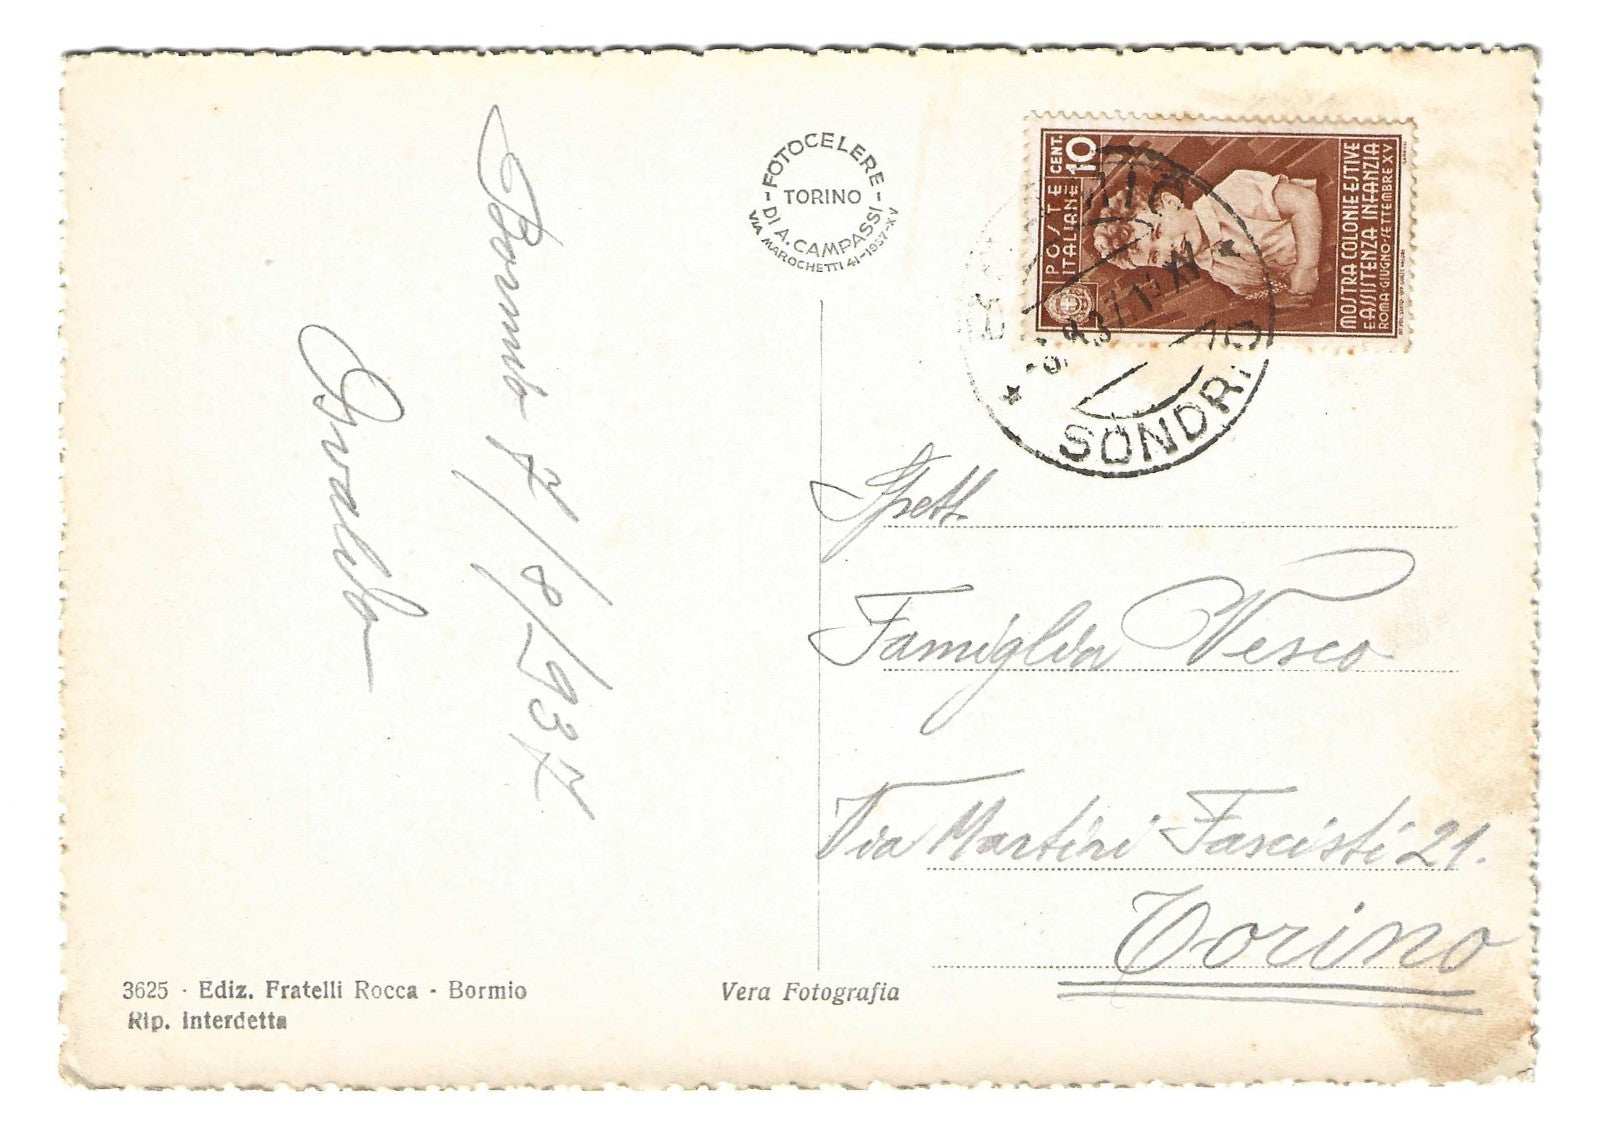 Bormio 7/8/937
Osvaldo
FOTOCELERE
TORINO
DI A. CAMPASSI
VIA MAROCHETTI 41-1937-XV
POSTE
ITALIANE
CENT.
10
MOSTRA COLONIE ESTIVE
E ASSISTENZA INFANZIA
ROMA-GIUGNO-SETTEMBRE XV
SONDRIO
Spett.
Famiglia Vesco
Via Martiri Fascisti 21.
Torino
3625 - Ediz. Fratelli Rocca - Bormio
Rip. Interdetta
Vera Fotografia